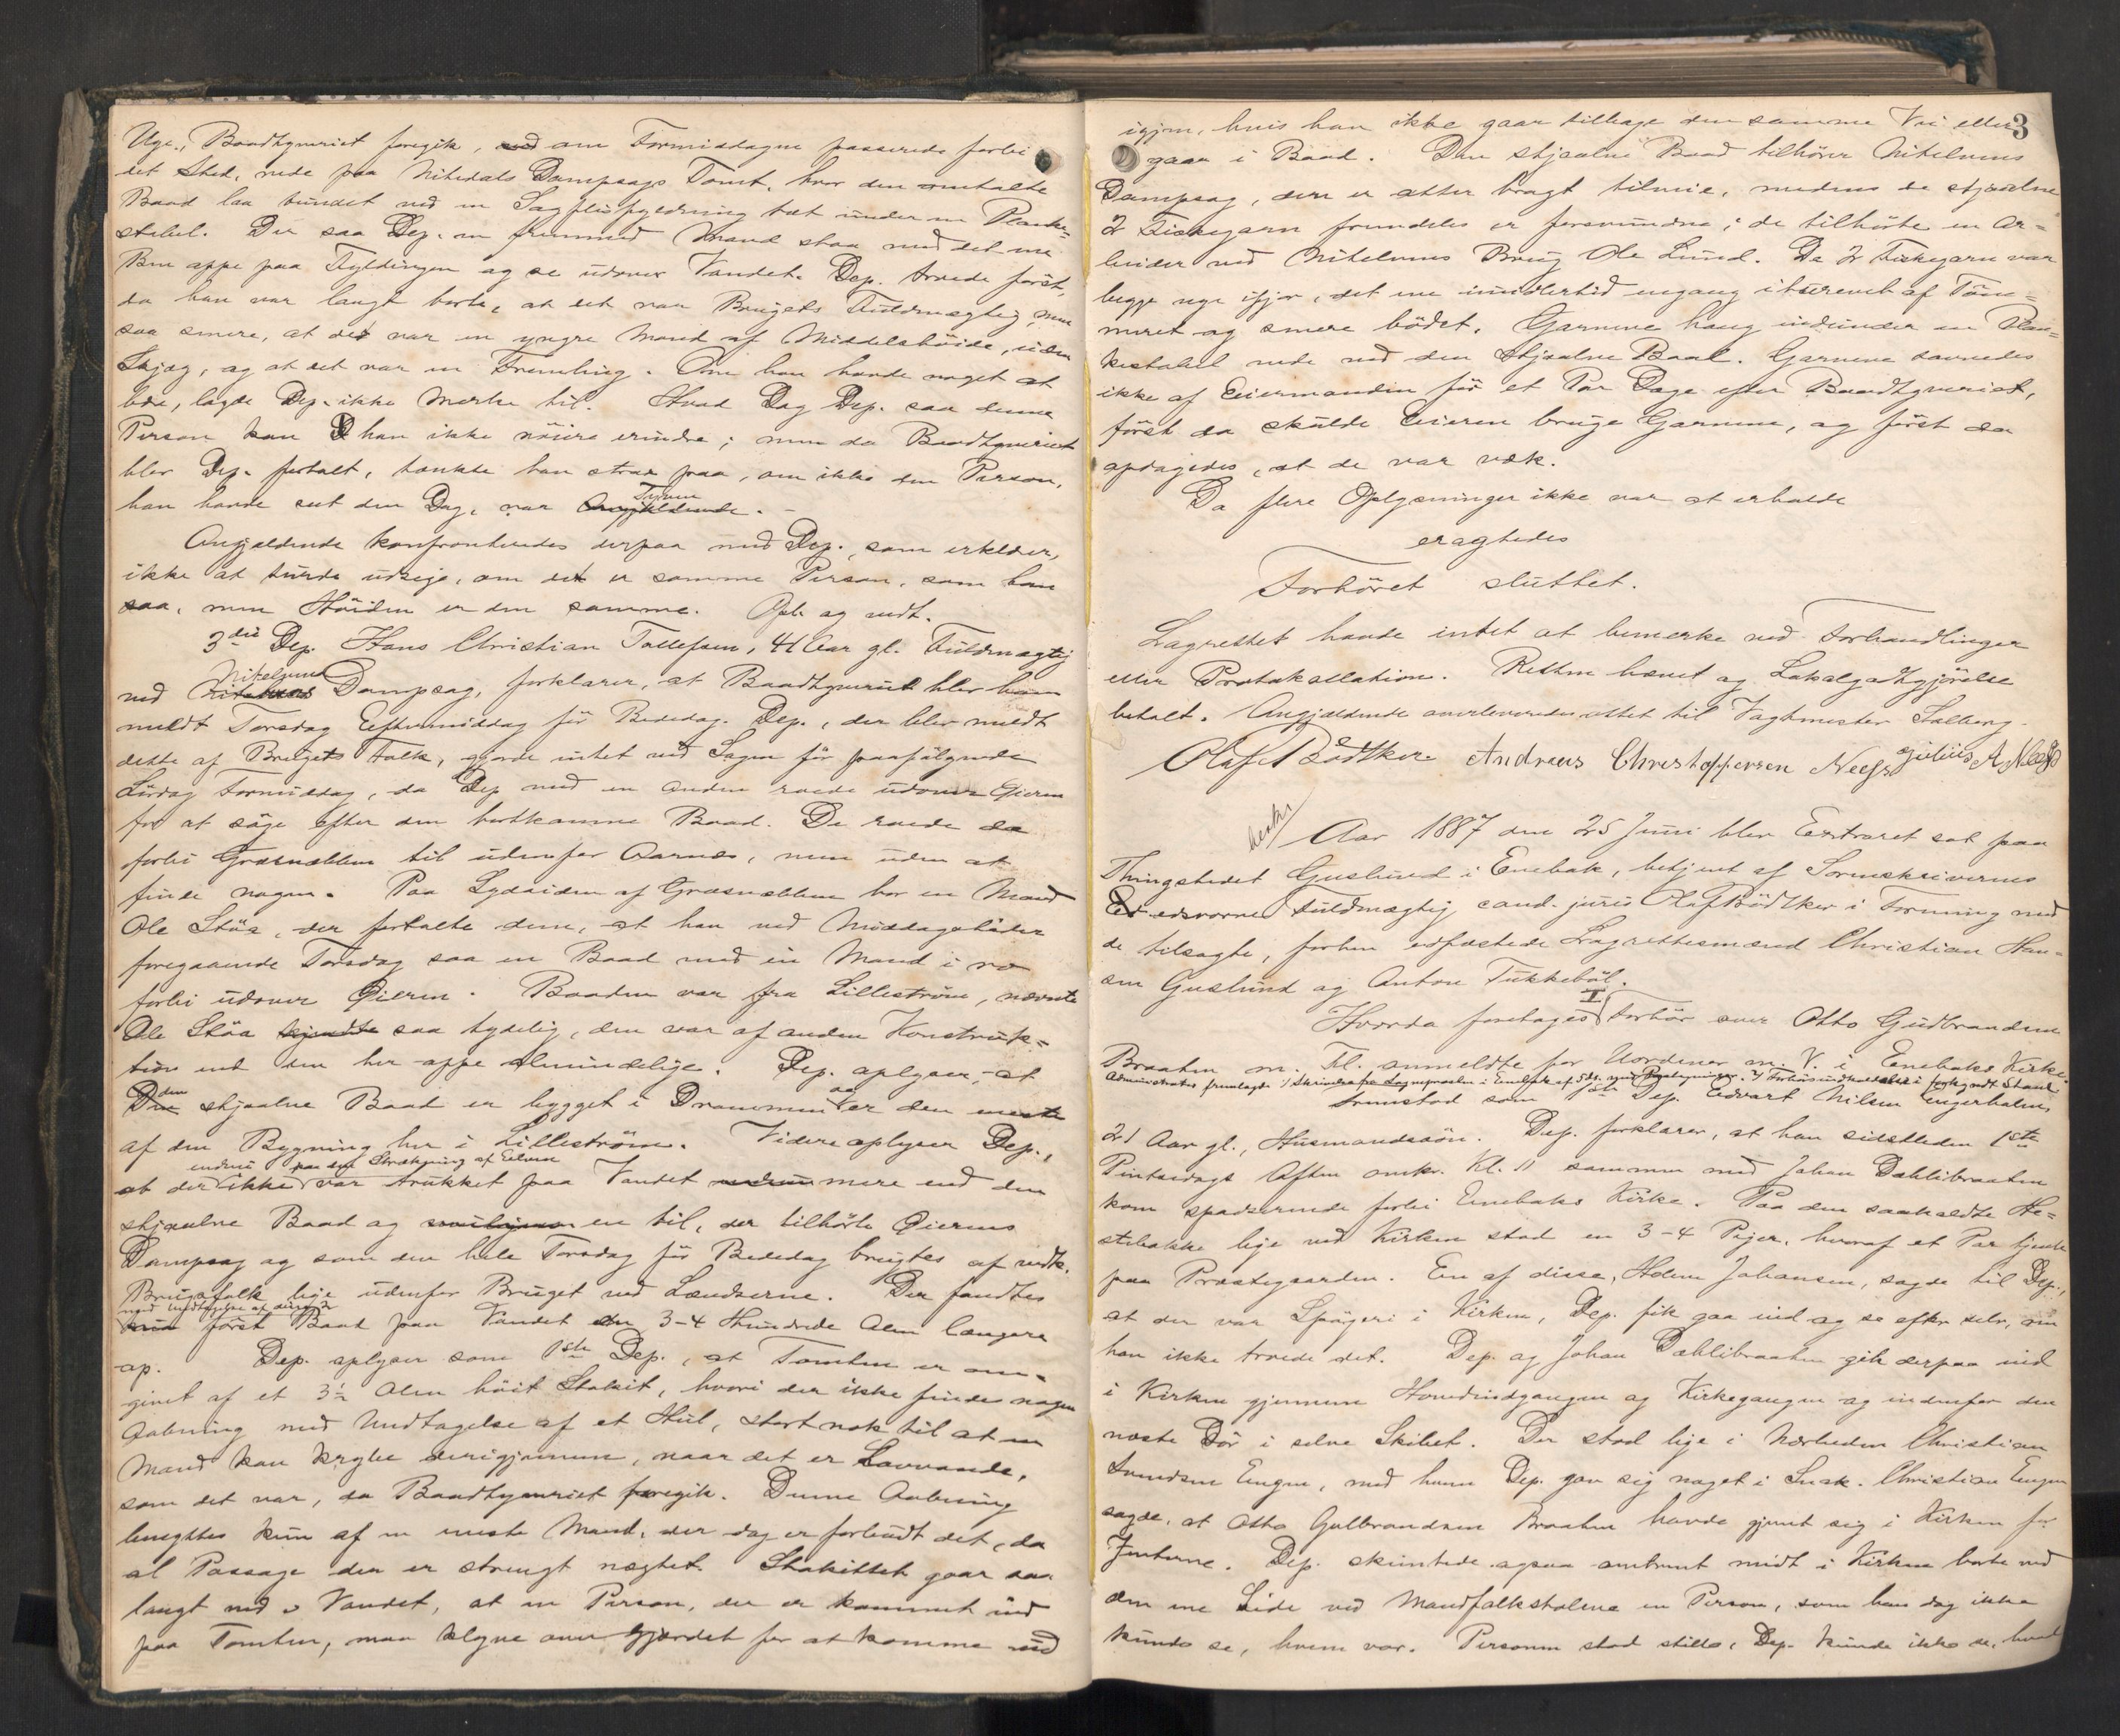 Uge, Baadtyveriet foregik, om Formiddagen passerede forbi
det Sted, nede paa Nitedals Dampsags Tomt, hvor den omtalte
Baad laa bundet ved en Sagflisfyldning tæt under en Planke=
stabel. Der saa Dep. en fremmed Mand staa med det ene
Ben oppe paa Fyldingen og se udover Vandet. Dep. troede först,
da han var langt borte, at det var Brugets Fuldmægtig, men
saa senere, at det var en yngre Mand af Middelshöide, uden
Skjæg, og at det var en Fremling. Om han havde noget at
bære, lagde Dep. ikke Mærke til. Hvad Dag Dep. saa denne
Person kan han ikke nöiere erindre; men da Baadtyveriet
blev Dep. fortalt, tænkte han strax paa, om ikke den Person,
han havde seet den Dag, var Tyven.
Angjældende konfronteredes derpaa med Dep., som erklærer,
ikke at turde udsige, om det er samme Person, som han
saa, men Höiden er den samme. Opl. og vedt.
3die Dep. Hans Christian Tollefsen, 41 Aar gl. Fuldmægtig
ved Nitelvens Dampsag, forklarer, at Baadtyveriet blev ham
meldt Torsdag Eftermiddag för Bededag. Dep., der blev meldt
dette af Brugets Folk, gjorde intet ved Sagen för paafölgende
Lördag Formiddag, da Dep. med en anden roede udover Öieren
for at söge efter den bortkomne Baad. De roede da
forbi Græsnæbben til udenfor Aarnes, men uden at
finde nogen. Paa Sydsiden af Græsnæbben bor en Mand
Ole Stöa, der fortalte dem, at han ved Middagstider
foregaaende Torsdag saa en Baad med en Mand i ro
forbi udover Öieren. Baaden var fra Lilleström, nævnte
Ole Stöa saa tydelig, den var af anden Konstruk=
tion end den her oppe almindelige. Dep. oplyser, at
den stjaalne Baad er bygget i Drammen og er den eneste
af den Bygning her i Lilleström. Videre oplyser Dep.,
at der endnu ikke paa den Strækning af Elven var trukket paa Vandet mere end den
stjaalne Baad og en til, der tilhörte Öierens
Dampsag og som den hele Torsdag för Bededag brugtes af vedk.
Brugsfolk lige udenfor Bruget ved Lændserne. Der fandtes
med Undtagelse af disse
först Baad paa Vandet 3-4 Hundrede Alen længere
op. Dep. oplyser som 1ste Dep., at Tomten er om=
givet af et 3½ Alen höit Stakit, hvori der ikke findes nogen
Aabning med Undtagelse af et Hul, stort nok til at en
Mand kan krybe derigjennem, naar det er Lavvande,
som det var, da Baadtyveriet foregik. Denne Aabning
benyttes kun af en eneste Mand, der dog er forbudt det, da
al Passage der er strengt nægtet. Stakittet gaar saa
langt ned i Vandet, at en Person, der er kommet ind
paa Tomten, maa klyve over Gjærdet for at komme ud
3
igjen, hvis han ikke gaar tilbage den samme Vei eller
gaar i Baad. Den stjaalne Baad tilhörer Nitelvens
Dampsag, den er atter bragt tilveie, medens de stjaalne
2 Fiskegarn fremdeles er forsvundne; de tilhörte en Ar=
beider ved Nitelvens Brug Ole Lund. De 2 Fiskegarn var
begge nye ifjor, det ene imidlertid engang itureevet af Töm=
meret og senere bödet. Garnene hang indunder en Plan=
kestabel nede ved den stjaalne Baad. Garnene savnedes
ikke af Eiermanden för et Par Dage efter Baadtyveriet,
först da skulde Eieren bruge Garnene, og först da
opdagedes, at de var væk.
Da flere Oplysninger ikke var at erholde
eragtedes
Forhöret sluttet.
Lagrettet havde intet at bemerke ved Forhandlinger
eller Protokollation. Retten hævet og Lokalgodtgjörelse
betalt. Angjældende overleveredes attet til Vagtmester Solberg.
Olaf Bödtker Andreas Christoffersen Neess Julius A. Næss
beskr
Aar 1887 den 25 Juni blev Extraret sat paa
Thingstedet Guslund i Enebak, betjent af Sorenskriverens
edsvorne Fuldmægtig cand. juris Olaf Bödtker i Forening med
de tilsagte, forhen edfæstede Lagrettesmænd Christian Han=
sen Guslund og Anton Tukkeböl.
Hvorda foretoges I Forhör over Otto Gudbrandsen
Braaten m. Fl. anmeldte for Uordener m. V. i Enebaks Kirke.
som 1ste Dep. Edvart Nilsen Engerholm,
21 Aar gl., Husmandssön. Dep. forklarer, at han sidstleden 1ste
Pintsedags Aften omkr. Kl. 11 sammen med Johan Dahlibraaten
kom spadserende forbi Enebaks Kirke. Paa den saakaldte He=
stebakke lige ved Kirken stod en 3-4 Piger, hvoraf et Par tjente
paa Præstegaarden. En af disse, Helene Johansen, sagde til Dep.,
at der var Spögeri i Kirken, Dep. fik gaa ind og se efter selv, om
han ikke troede det. Dep. og Johan Dahlibraaten gik derpaa ind
i Kirken gjennem Hovedindgangen og Kirkegangen og indenfor den
næste Dör i selve Skibet. Der stod lige i Nærheden Christian
Svendsen Engen, med hvem Dep. gav sig noget i Snak. Christian Engen
sagde, at Otto Gulbrandsen Braaten havde gjemt sig i Kirken for
Jenterne. Dep. skimtede ogsaa omtrent midt i Kirken borte ved
den ene Side ved Mandfolkstolene en Person, som han dog ikke
kunde se, hvem var. Personen stod stille, Dep. kunde ikke se, hvad